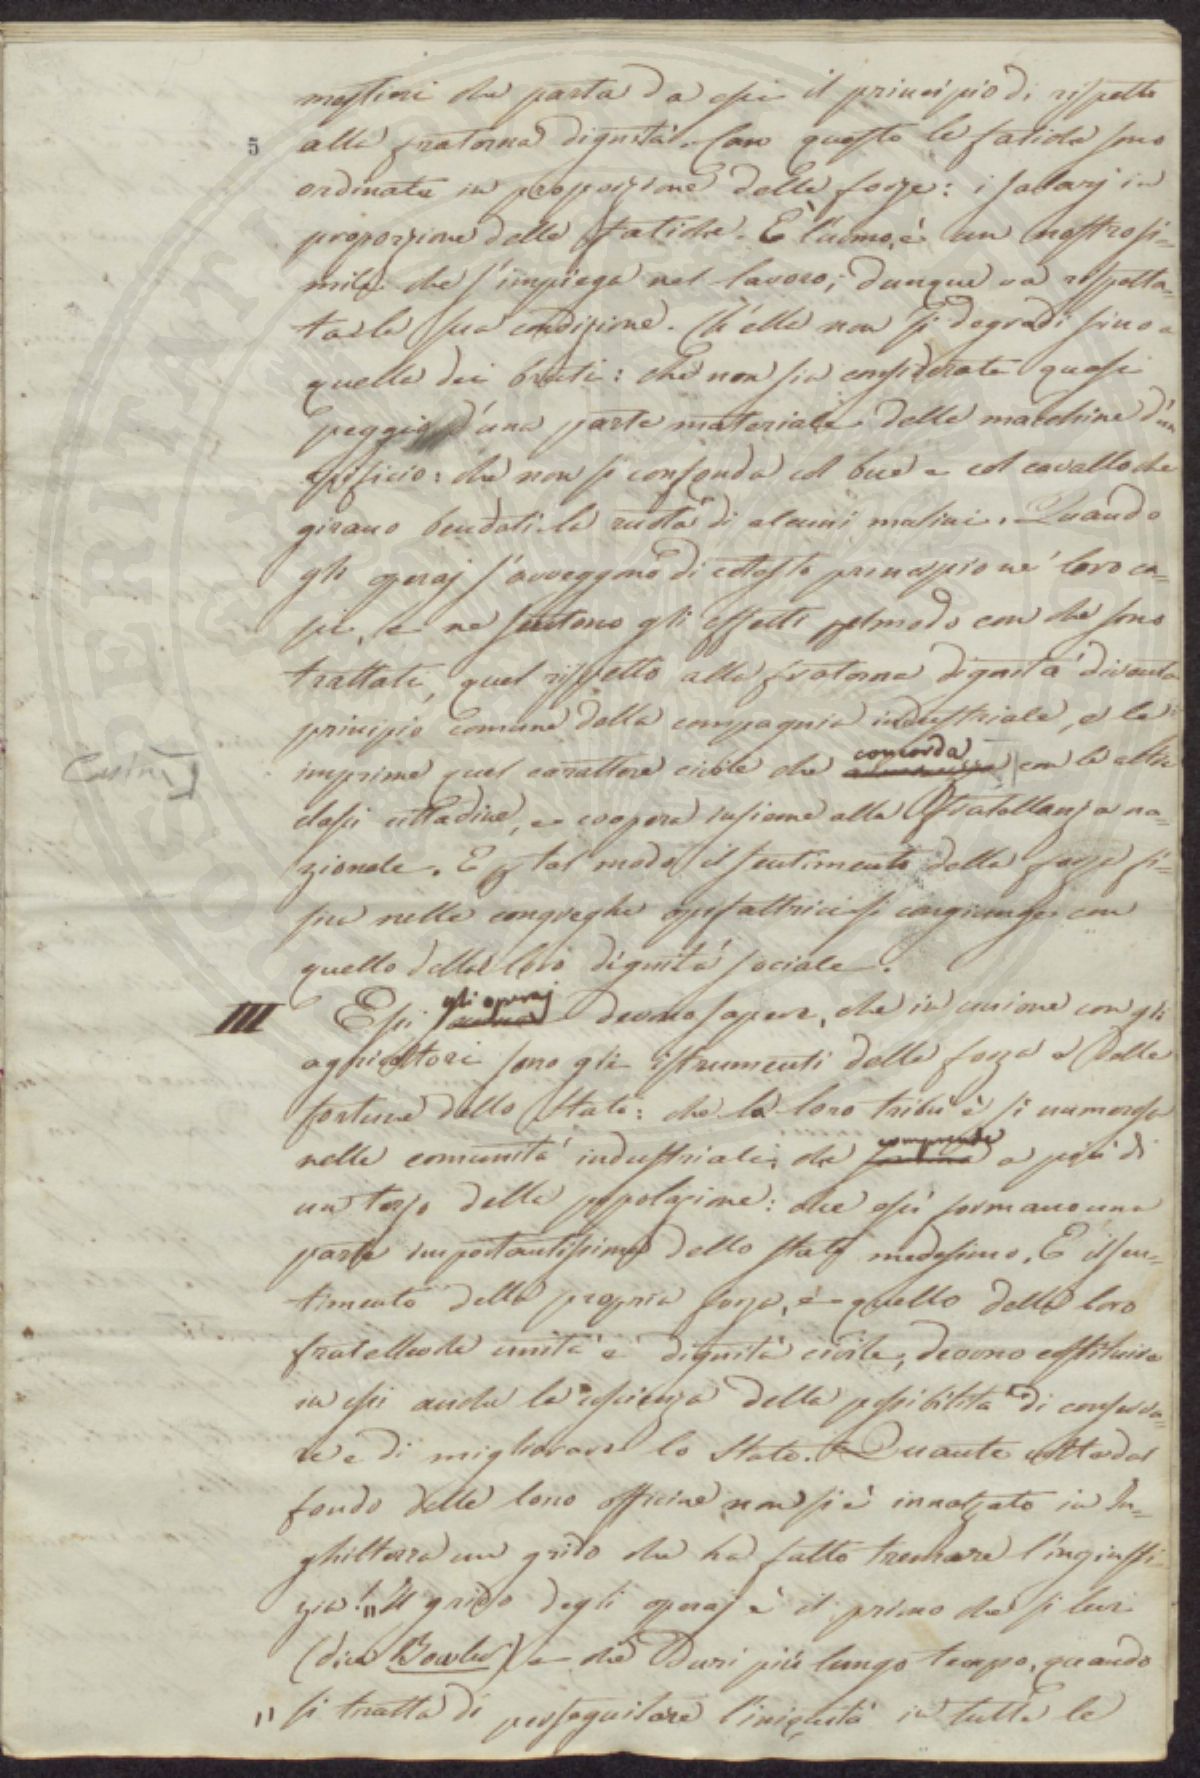 mestieri che parta da essi il principio di rispetto
5 alla fraterna dignità. Con questo le fatiche sono
ordinate in proporzione delle forze: i salarj in
proporzione delle fatiche. È l'uomo, è un nostro si-
mile che s'impiega nel lavoro; dunque va rispetta-
ta la sua condizione. Ch'ella non si degradi sino a
quella dei bruti: che non sia considerata quasi
peggio d'una parte materiale delle macchine d'un
opificio: che non si confonda col bue e col cavallo che
girano bendati la ruota di alcuni mulini. Quando
gli operaj s'avveggono di cotesto principio ne' loro ca-
pi, e ne sentono gli effetti pel modo con che sono
trattati, quel rispetto alla fraterna dignità diventa
principio comune della compagnia industriale, e le
imprime quel carattere civile che concorda con le altre
classi cittadine, e coopera insieme alla fratellanza na-
zionale. E per tal modo il sentimento della forza fi-
sica nelle congreghe opifattrici si congiunge con
quello della loro dignità sociale.
III Essi gli operaj devono sapere, che in unione con gli
agricoltori sono gli istrumenti della forza e della
fortuna dello Stato: che la loro tribù è sì numerosa
nelle comunità industriali, che comprende a più di
un terzo della popolazione: che essi formano una
parte importantissima dello stato medesimo. E il sen-
timento della propria forza, e quello della loro
fratellevole unità e dignità civile, devono costituire
in essi anche la coscienza della possibilità di conserva-
re e di migliorare lo Stato. Quante volte dal
fondo delle loro officine non si è innalzato in In-
ghilterra un grido che ha fatto tremare l'ingiusti-
zia! "Il grido degli operaj è il primo che si levi
(dice Bowles) e che duri più lungo tempo, quando
" si tratta di perseguitare l'iniquità in tutte le